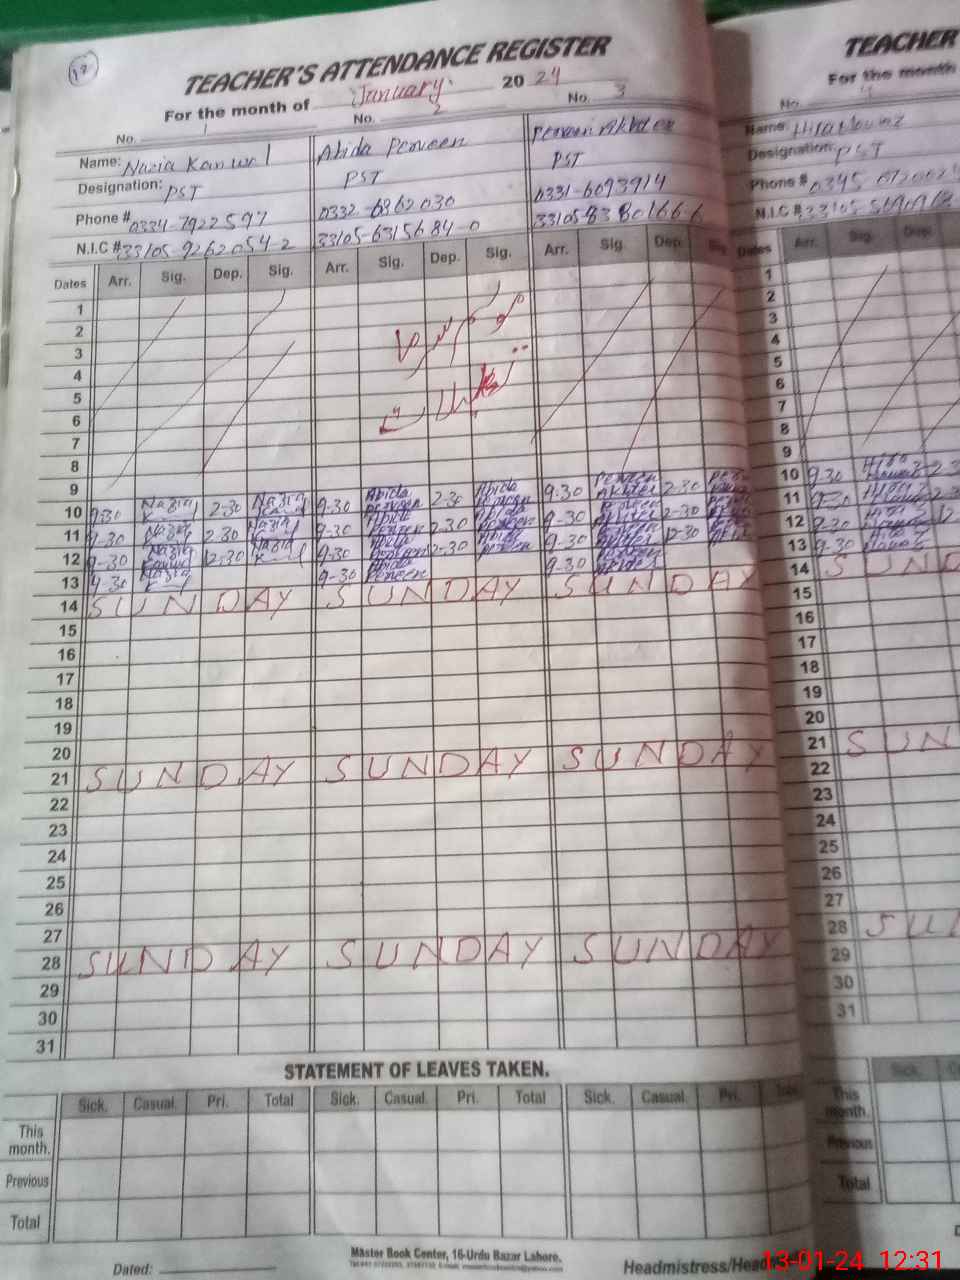 17
TEACHER'S ATTENDANCE REGISTER
For the month of January. 20 24
No. 1 No. 2 No. 3
Name: Nazia Kanwal Abida Perveen Perveen Akhter
Designation: PST PST PST
Phone # 0334-7922597 0332-6962030 0331-6093914
N.I.C # 33105-9262054-2 33105-6315684-0 33105 8380166-6
Dates Arr. Sig. Dep. Sig. Arr. Sig. Dep. Sig. Arr. Sig. Dep. Sig.
1
2
3
4
5
6
7
8
موسم سرما
تعطیلات
9
10 9-30 Nazia Kanwal 2-30 Nazia Kanwal 9-30 Abida Perveen 2-30 Abida Perveen 9-30 Perveen Akhter 2-30
11 9-30 Nazia 2-30 Nazia 9-30 Abida Perveen 2-30 Abida Perveen 9-30 Perveen Akhter 2-30
12 9-30 Nazia Kanwal 12-30 Nazia 9-30 Abida Perveen 12-30 Abida Perveen 9-30 Perveen Akhter 12-30
13 9-30 Nazia 9-30 Abida Perveen 9-30 Perveen Akhter
14 SUNDAY SUNDAY SUNDAY
15
16
17
18
19
20
21 SUNDAY SUNDAY SUNDAY
22
23
24
25
26
27
28 SUNDAY SUNDAY SUNDAY
29
30
31
STATEMENT OF LEAVES TAKEN.
Sick. Casual. Pri. Total Sick. Casual. Pri. Total Sick. Casual. Pri. Total
This month.
Previous
Total
Master Book Center, 16-Urdu Bazar Lahore.
Dated: Headmistress/Head
TEACHER
For the month
No. 4
Name: Hira Nawaz
Designation: PST
Phone # 0345
N.I.C # 33105
Dates Arr. Sig. Dep.
1
2
3
4
5
6
7
8
9
10 9-30 Hira Nawaz 2-3
11 9-30 Hira Nawaz
12 9-30 Hira Nawaz 12
13 9-30 Hira Nawaz
14 SUND
15
16
17
18
19
20
21 SUN
22
23
24
25
26
27
28 SU
29
30
31
Sick.
This month.
Previous
Total
13-01-24 12:31